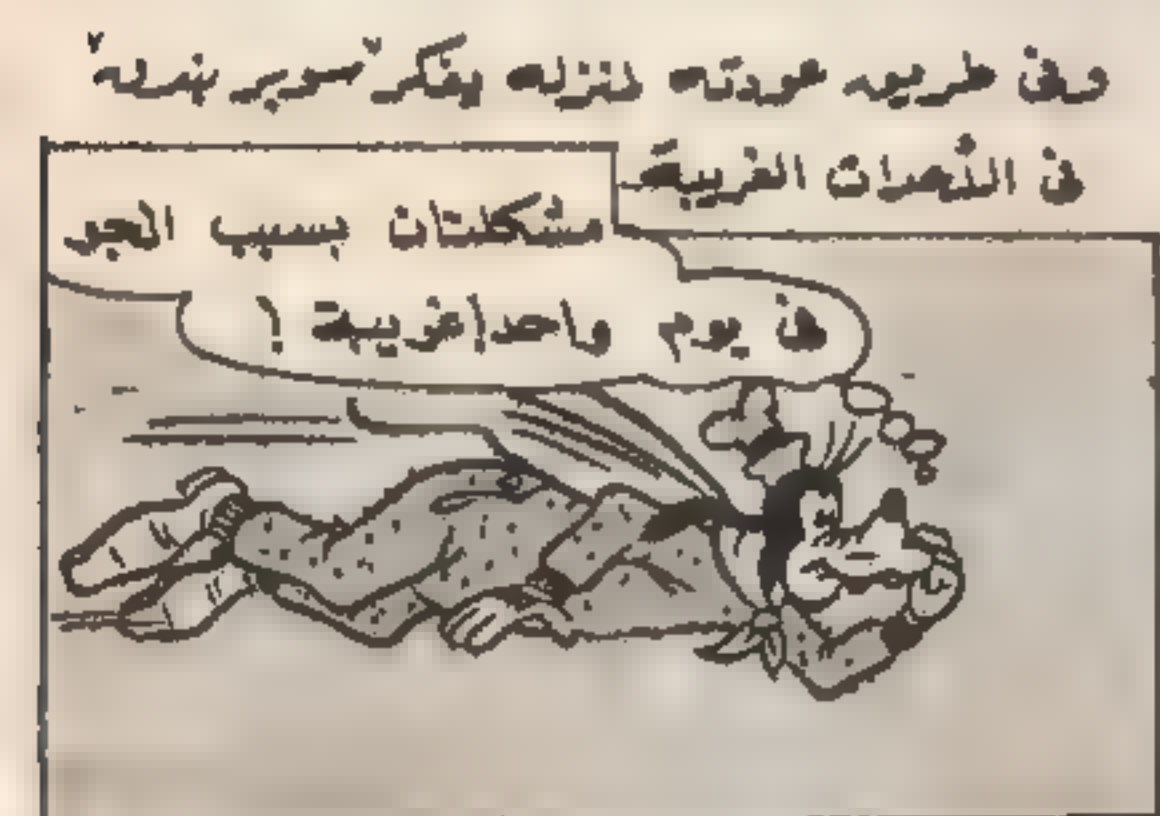 وفى طريق عودته لمنزله يفكر "سوبر بندق"
فى النصرات الغريبة
مشكلتان بسبب الجو
فى يوم واحد! غريبة !